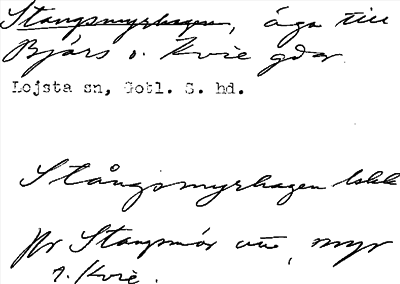 Stångsmyrhagen, äga till
Bjärs o. Kvie gdar
Lojsta sn, Gotl. S. hd.
Stångsmyrhagen
Stångmör, myr
Kvie.